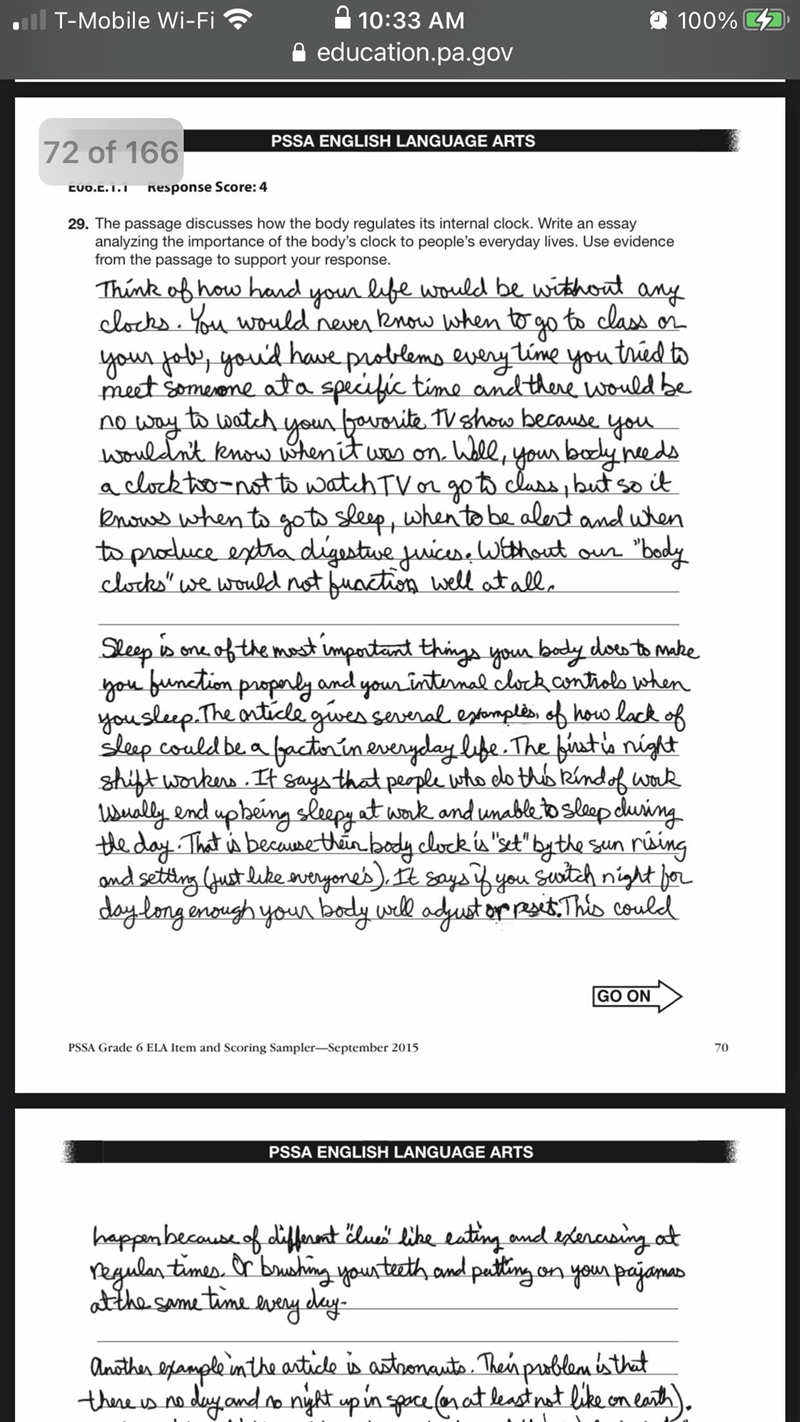 T-Mobile Wi-Fi 10:33 AM 100%
education.pa.gov
PSSA ENGLISH LANGUAGE ARTS
72 of 166
E06.E.1.1 Response Score: 4
29. The passage discusses how the body regulates its internal clock. Write an essay
analyzing the importance of the body's clock to people's everyday lives. Use evidence
from the passage to support your response.
Think of how hard your life would be without any
clocks. You would never know when to go to class or
your job, you'd have problems every time you tried to
meet someone at a specific time and there would be
no way to watch your favorite TV show because you
wouldn't know when it was on. Well, your body needs
a clock too-not to watch TV or go to class, but so it
knows when to go to sleep, when to be alert and when
to produce extra digestive juices. Without our "body
clocks" we would not function well at all.
Sleep is one of the most important things your body does to make
you function properly and your internal clock controls when
you sleep. The article gives several examples, of how lack of
sleep could be a factor in everyday life. The first is night
shift workers. It says that people who do this kind of work
usually end up being sleepy at work and unable to sleep during
the day. That is because their body clock is "set" by the sun rising
and setting (just like everyone's). It says if you switch night for
day long enough your body will adjust or reset. This could
GO ON
PSSA Grade 6 ELA Item and Scoring Sampler—September 2015 70
PSSA ENGLISH LANGUAGE ARTS
happen because of different "clues" like eating and exercising at
regular times. Or brushing your teeth and putting on your pajamas
at the same time every day.
Another example in the article is astronauts. Their problem is that
there is no day and no night up in space (or at least not like on earth).